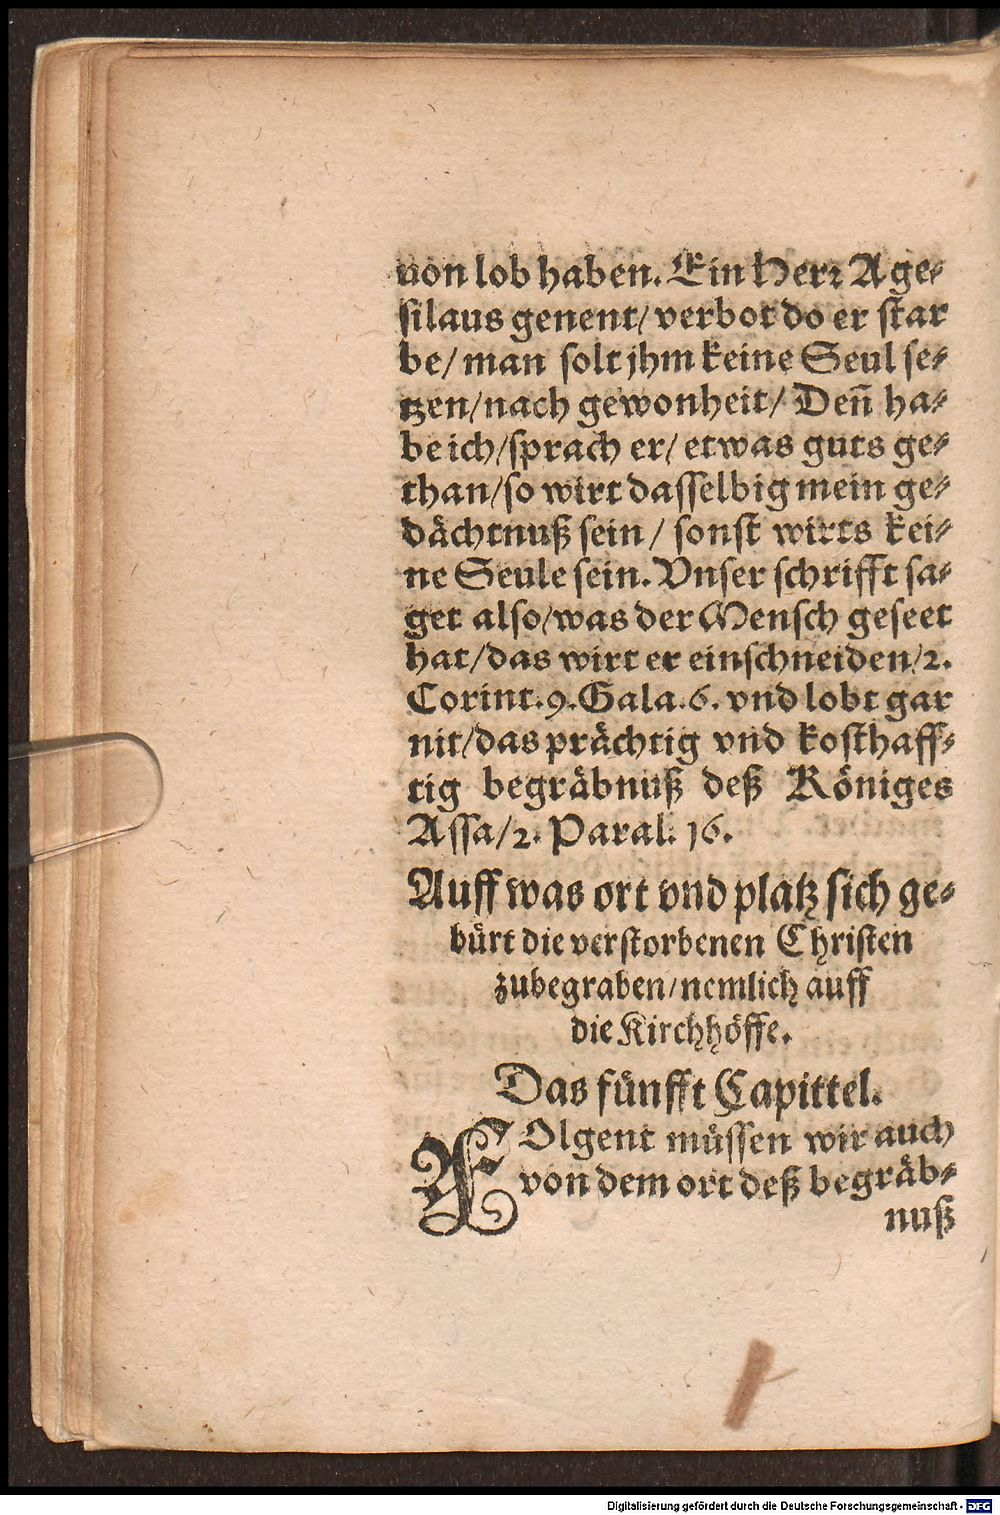 von lob haben. Ein Herꝛ Age⸗
ſilaus genent/ verbot do er ſtar
be/ man ſolt jhm keine Seul ſe⸗
tzen/ nach gewonheit/ Deñ ha⸗
be ich/ ſprach er/ etwas guts ge⸗
than/ ſo wirt daſſelbig mein ge⸗
dächtnuß ſein / ſonſt wirts kei⸗
ne Seule ſein. Vnſer ſchrifft ſa⸗
get alſo/ was der Menſch geſeet
hat/ das wirt er einſchneiden/ 2.
Corint. 9. Gala. 6. vnd lobt gar
nit/ das prächtig vnd koſthaff⸗
tig begräbnuß deß Königes
Aſſa/ 2. Paral. 16.
Auff was ort vnd platz ſich ge⸗
bürt die verſtorbenen Chriſten
zubegraben/ nemlich auff
die Kirchhöffe.
Das fünfft Capittel.
FOlgent müſſen wir auch
von dem ort deß begräb⸗
nuß
Digitalisierung gefördert durch die Deutsche Forschungsgemeinschaft - DFG